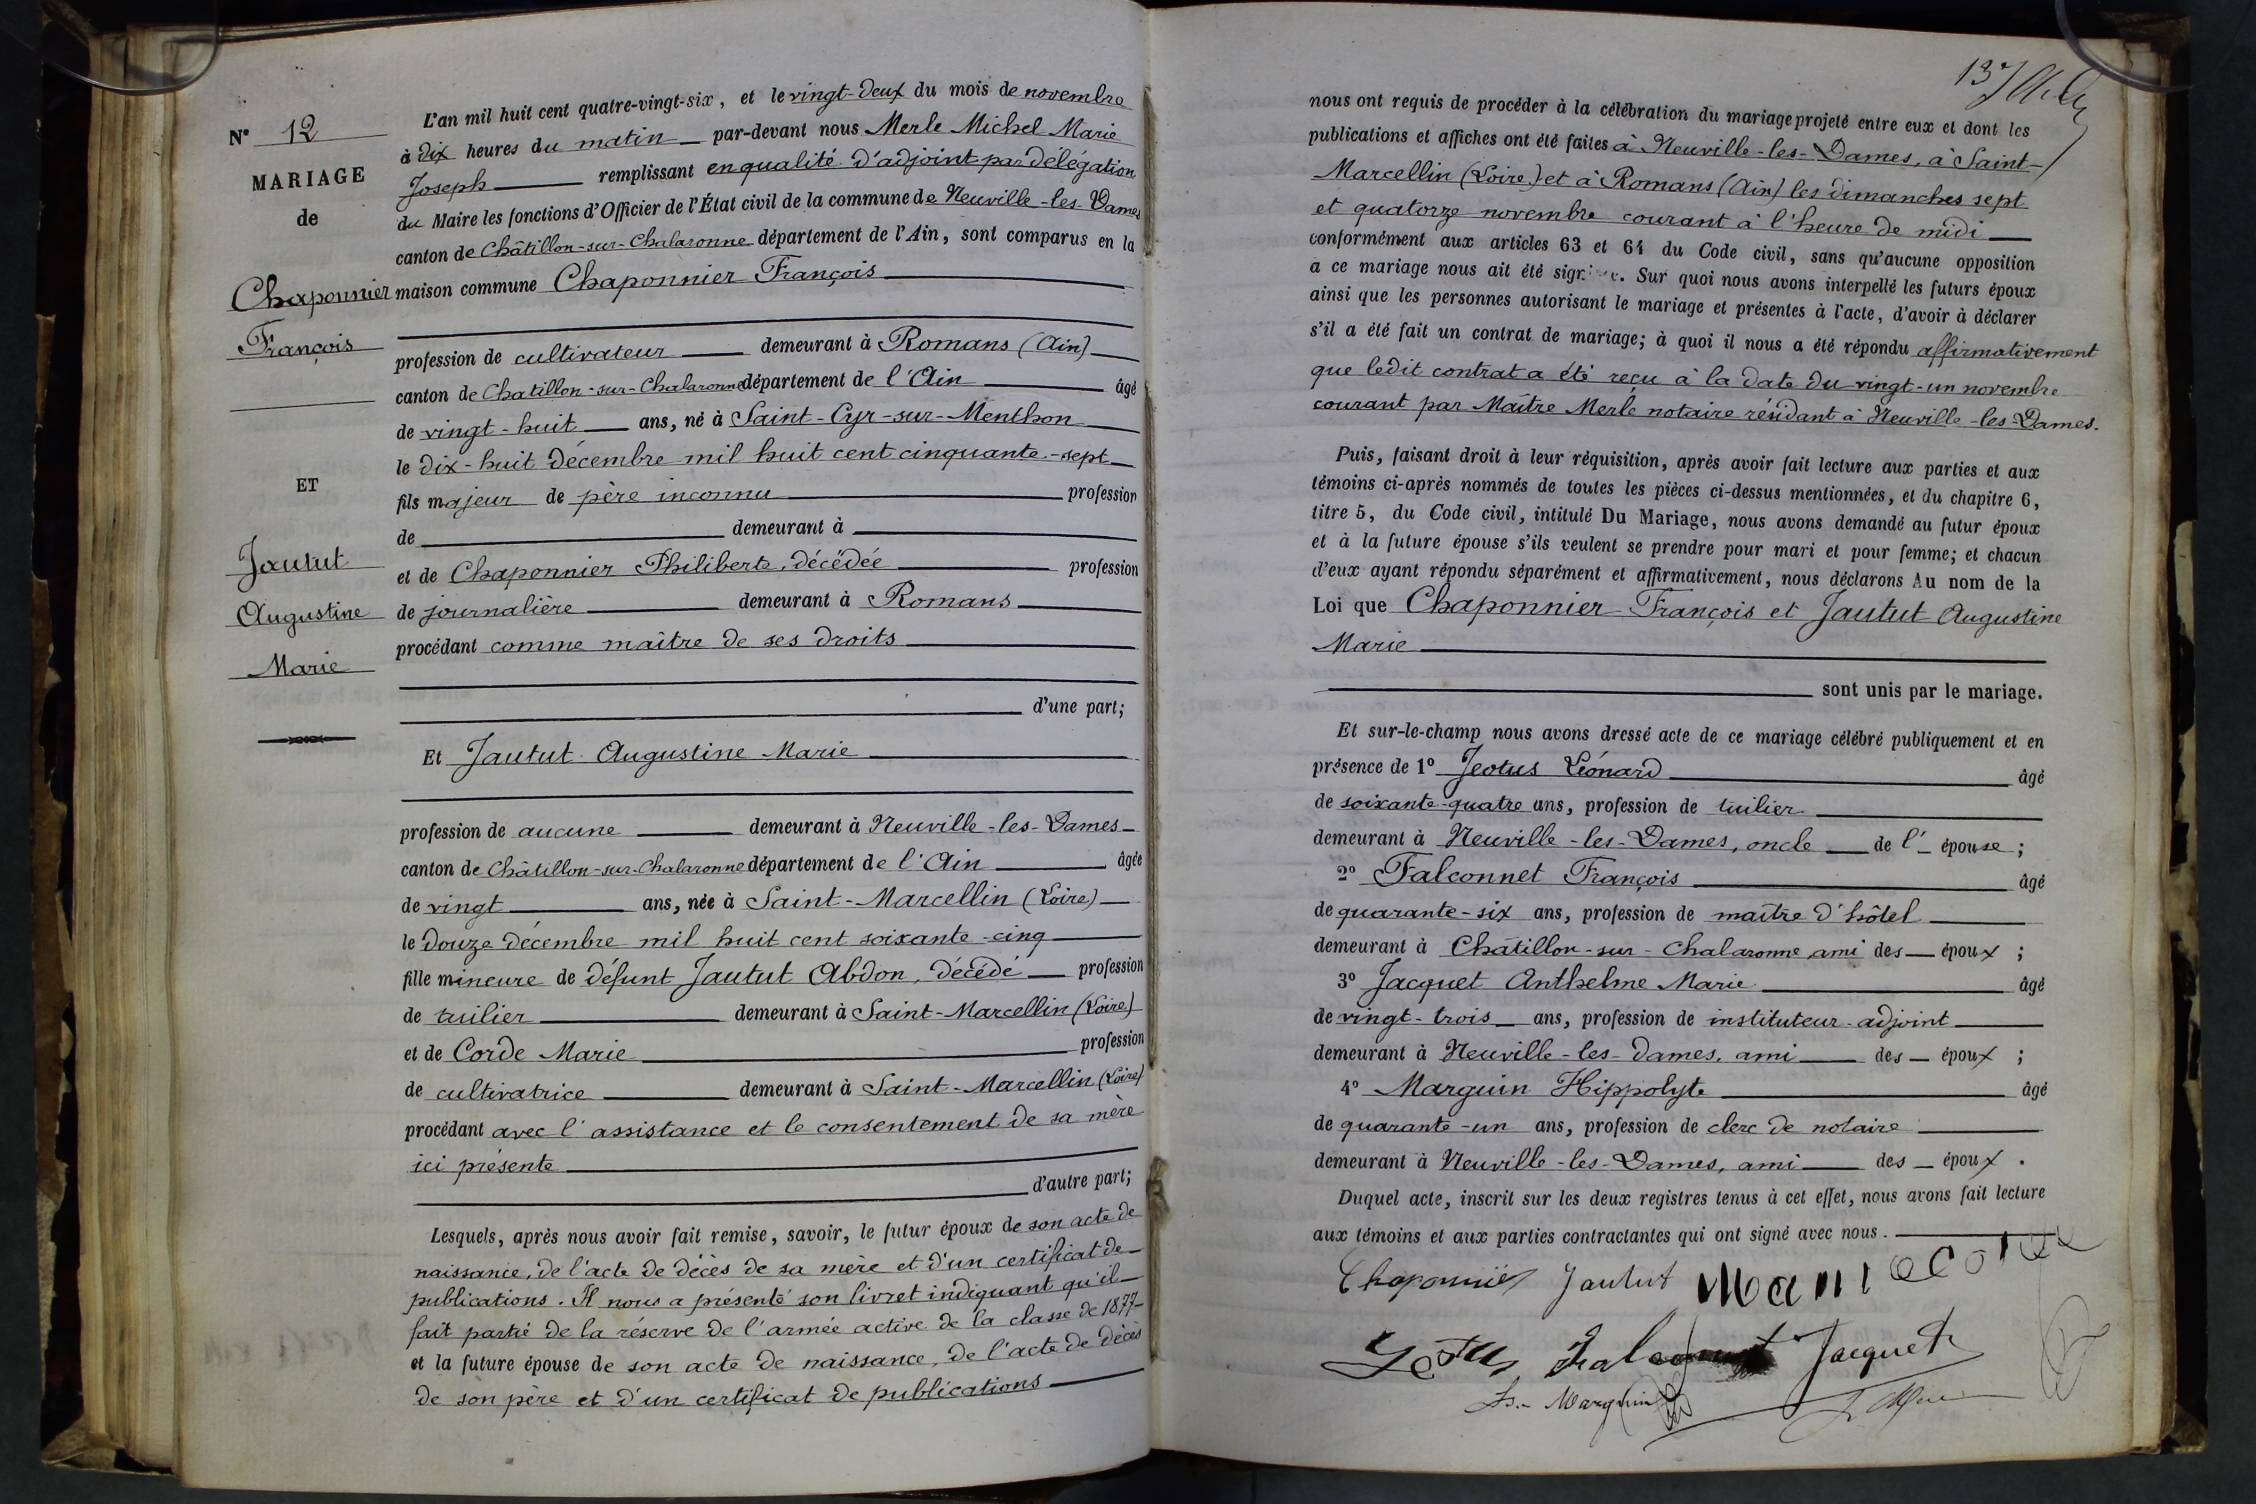 N° 12
MARIAGE
de
Chaponnier
François
ET
Jautut
Augustine
Marie
L'an mil huit cent quatre-vingt-six, et le vingt-deux du mois de novembre
à dix heures du matin par-devant nous Merle Michel Marie
Joseph remplissant en qualité d'adjoint par délégation
du Maire les fonctions d'Officier de l'État civil de la commune de Neuville-les-Dames
canton de Châtillon-sur-Chalaronne département de l'Ain, sont comparus en la
maison commune Chaponnier François
profession de cultivateur demeurant à Romans (Ain)
canton de Chatillon-sur-Chalaronne département de l'Ain âgé
de vingt-huit ans, né à Saint-Cyr-sur-Menthon
le dix-huit décembre mil huit cent cinquante-sept
fils majeur de père inconnu profession
de demeurant à
et de Chaponnier Philiberte, décédée profession
de journalière demeurant à Romans
procédant comme maître de ses droits
d'une part;
Et Jautut Augustine Marie
profession de aucune demeurant à Neuville-les-Dames
canton de Châtillon-sur-Chalaronne département de l'Ain âgée
de vingt ans, née à Saint-Marcellin (Loire)
le douze décembre mil huit cent soixante-cinq
fille mineure de défunt Jautut Abdon, décédé profession
de tuilier demeurant à Saint-Marcellin (Loire)
et de Corde Marie profession
de cultivatrice demeurant à Saint-Marcellin (Loire)
procédant avec l'assistance et le consentement de sa mère
ici présente
d'autre part;
Lesquels, après nous avoir fait remise, savoir, le futur époux de son acte de
naissance, de l'acte de décès de sa mère et d'un certificat de
publications. Il nous a présenté son livret indiquant qu'il
fait partie de la réserve de l'armée active de la classe de 1877
et la future épouse de son acte de naissance, de l'acte de décès
de son père et d'un certificat de publications
137
nous ont requis de procéder à la célébration du mariage projeté entre eux et dont les
publications et affiches ont été faites à Neuville-les-Dames, à Saint-
Marcellin (Loire) et à Romans (Ain) les dimanches sept
et quatorze novembre courant à l'heure de midi
conformément aux articles 63 et 64 du Code civil, sans qu'aucune opposition
a ce mariage nous ait été signifiée. Sur quoi nous avons interpellé les futurs époux
ainsi que les personnes autorisant le mariage et présentes à l'acte, d'avoir à déclarer
s'il a été fait un contrat de mariage; à quoi il nous a été répondu affirmativement
que ledit contrat a été reçu à la date du vingt-un novembre
courant par Maître Merle notaire résidant à Neuville-les-Dames.
Puis, faisant droit à leur réquisition, après avoir fait lecture aux parties et aux
témoins ci-après nommés de toutes les pièces ci-dessus mentionnées, et du chapitre 6,
titre 5, du Code civil, intitulé Du Mariage, nous avons demandé au futur époux
et à la future épouse s'ils veulent se prendre pour mari et pour femme; et chacun
d'eux ayant répondu séparément et affirmativement, nous déclarons Au nom de la
Loi que Chaponnier François et Jautut Augustine
Marie
sont unis par le mariage.
Et sur-le-champ nous avons dressé acte de ce mariage célébré publiquement et en
présence de 1° Jeotus Léonard âgé
de soixante-quatre ans, profession de tuilier
demeurant à Neuville-les-Dames, oncle de l' épouse;
2° Falconnet François âgé
de quarante-six ans, profession de maître d'hôtel
demeurant à Châtillon-sur-Chalaronne, ami des époux;
3° Jacquet Anthelme Marie âgé
de vingt-trois ans, profession de instituteur-adjoint
demeurant à Neuville-les-Dames, ami des époux;
4° Marguin Hippolyte âgé
de quarante-un ans, profession de clerc de notaire
demeurant à Neuville-les-Dames, ami des époux.
Duquel acte, inscrit sur les deux registres tenus à cet effet, nous avons fait lecture
aux témoins et aux parties contractantes qui ont signé avec nous.
Chaponnier Jautut
Falconnet Jacquet
Marguin